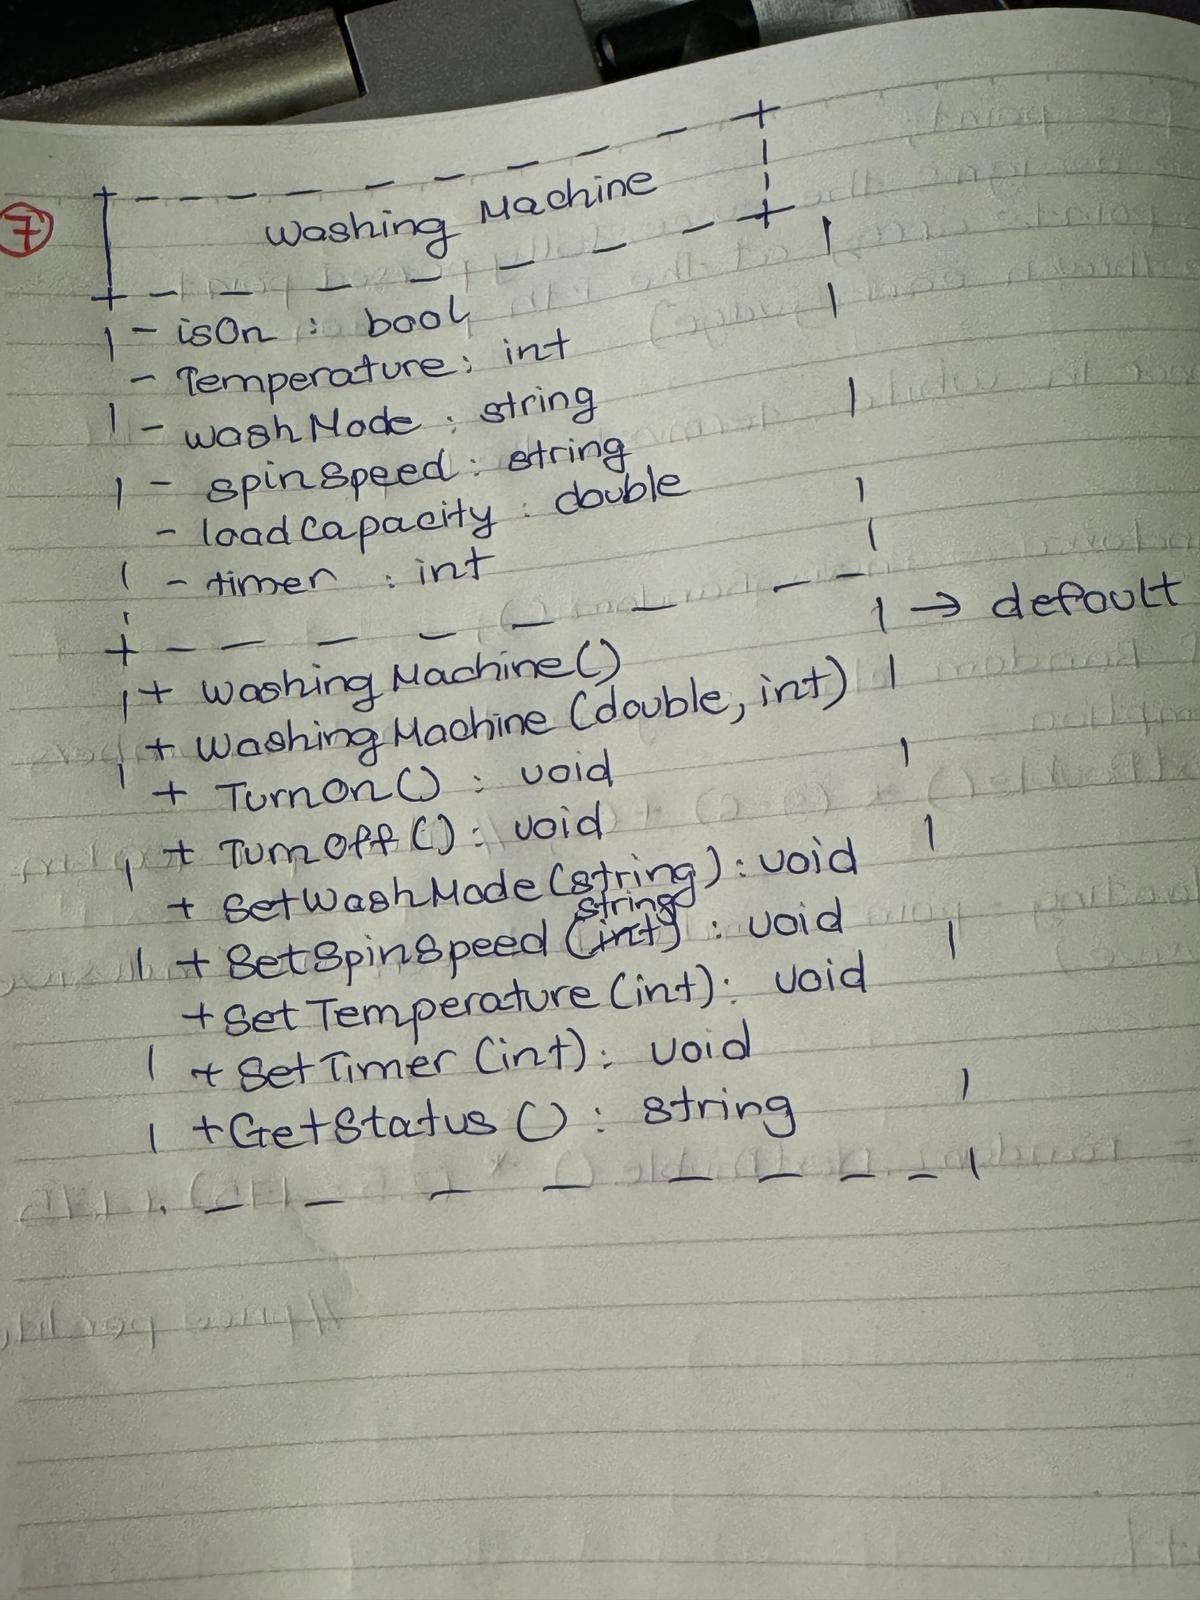 7
Washing Machine
- isOn : bool
- Temperature : int
- washMode : string
- spinSpeed : string
- loadCapacity : double
- timer : int
+ WashingMachine() → default
+ WashingMachine (double, int)
+ TurnOn() : void
+ TurnOff() : void
+ SetWashMode (string) : void
string
+ SetSpinSpeed (int) : void
+ SetTemperature (int) : void
+ SetTimer (int) : void
+ GetStatus () : string